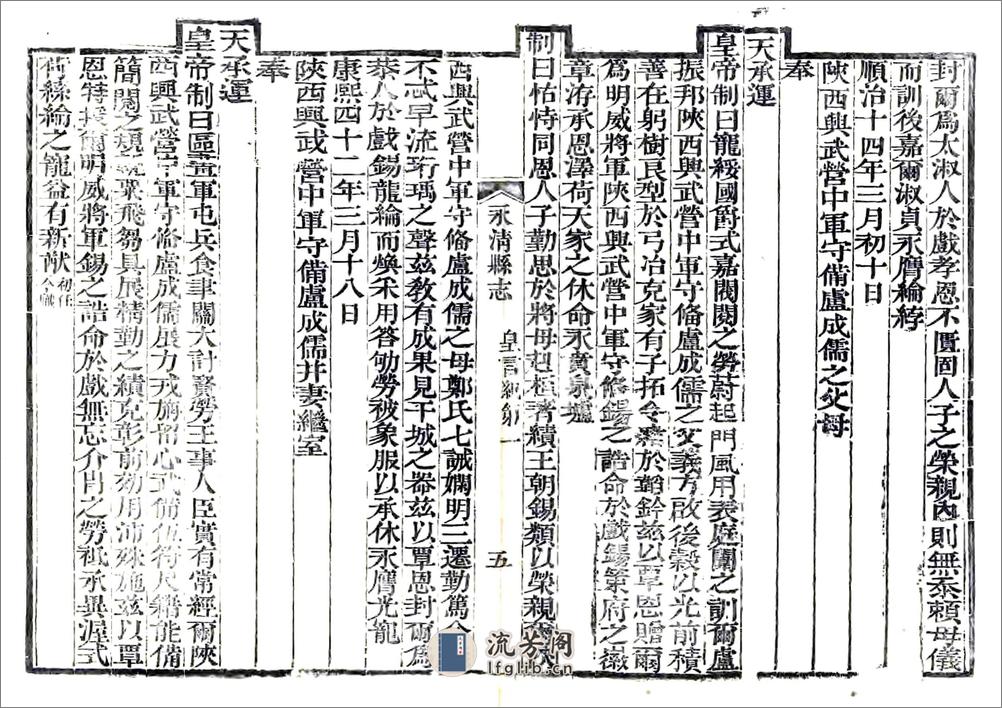 封爾爲太淑人於戲孝恩不匱固人子之榮親內則無忝賴母儀
而訓後嘉爾淑貞永膺綸綍
順治十四年三月初十日
陝西興武營中軍守備盧成儒之父母
奉
天承運
皇帝制曰寵綏國爵式嘉閥閱之勞蔚起門風用表庭闈之訓爾盧
振邦陝西興武營中軍守備盧成儒之父義方啟後穀以光前積
善在躬樹良型於弓冶克家有子拓令緒於韜鈐茲以覃恩贈爾
爲明威將軍陝西興武營中軍守備錫之誥命於戲錫策府之徽
章洊承恩澤荷天家之休命永賁泉壚
制曰怙恃同恩人子勤思於將母赳桓著績王朝錫類以榮親爾
西興武營中軍守備盧成儒之母鄭氏七誡嫻明三遷勤篤令
不忒早流珩瑀之聲茲敎有成果見干城之器茲以覃恩封爾爲
恭人於戲錫龍綸而煥采用答劬勞被象服以承休永膺光寵
康熙四十二年三月十八日
陝西興武營中軍守備盧成儒并妻繼室
奉
天承運
皇帝制曰區畫軍屯兵食事關大計賚勞王事人臣實有常經爾陝
西興武營中軍守備盧成儒展力戎旃留心武備伍符尺籍能備
簡閱之規芻具展精勤之績克彰前効用沛殊施茲以覃
恩特授爾明威將軍錫之誥命於戲無忘介冑之勞祗承異渥式
荷絲綸之寵益有新猷 初任 今職
永清縣志
皇言紀第一
五
流芳阁
lfglib.cn